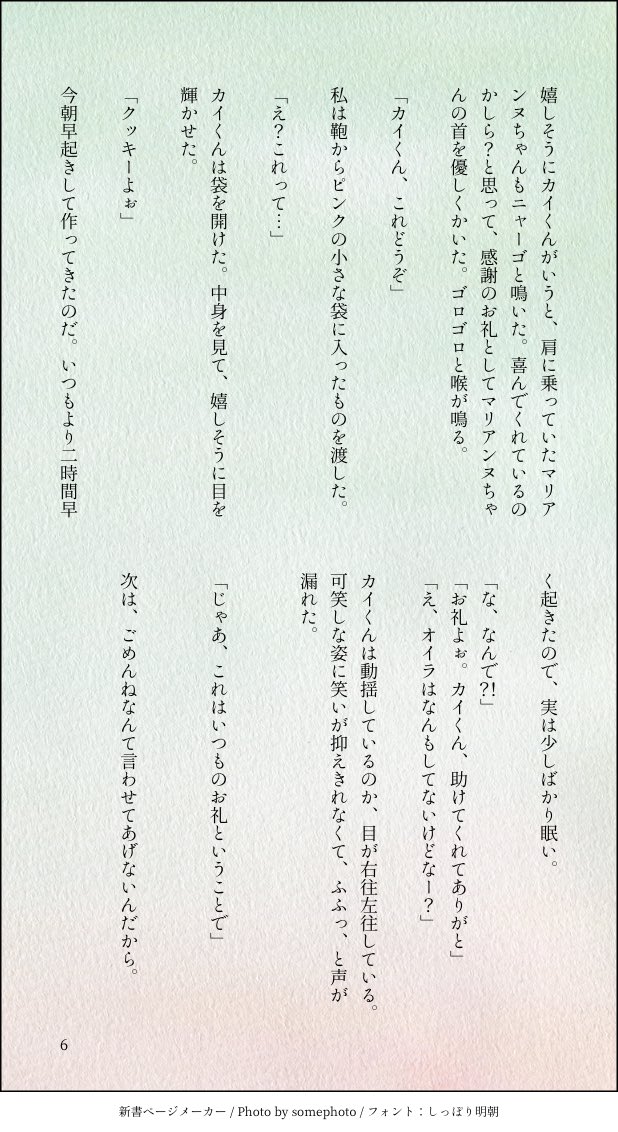 嬉しそうにカイくんがいうと、肩に乗っていたマリア
ンヌちゃんもニャーゴと鳴いた。喜んでくれているの
かしら？と思って、感謝のお礼としてマリアンヌちゃ
んの首を優しくかいた。ゴロゴロと喉が鳴る。
「カイくん、これどうぞ」
私は鞄からピンクの小さな袋に入ったものを渡した。
「え？これって…」
カイくんは袋を開けた。中身を見て、嬉しそうに目を
輝かせた。
「クッキーよぉ」
今朝早起きして作ってきたのだ。いつもより二時間早
く起きたので、実は少しばかり眠い。
「な、なんで?!」
「お礼よぉ。カイくん、助けてくれてありがと」
「え、オイラはなんもしてないけどなー？」
カイくんは動揺しているのか、目が右往左往している。
可笑しな姿に笑いが抑えきれなくて、ふふっ、と声が
漏れた。
「じゃあ、これはいつものお礼ということで」
次は、ごめんねなんて言わせてあげないんだから。
6
新書ページメーカー / Photo by somephoto / フォント：しっぽり明朝